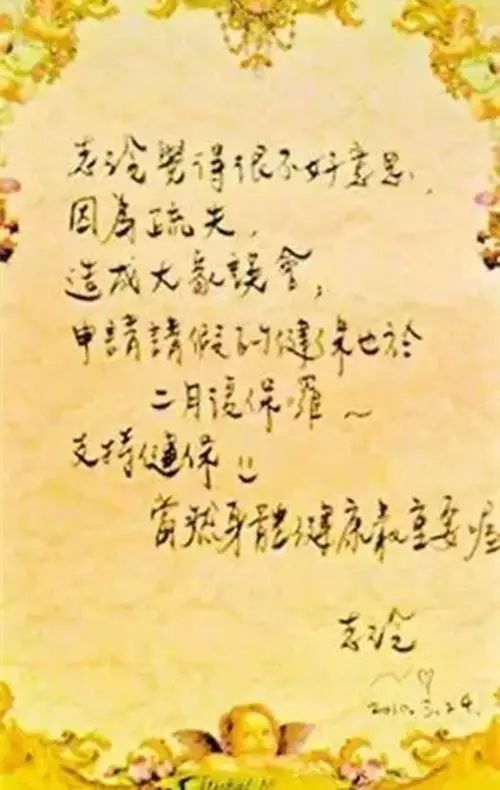 志玲覺得很不好意思，
因為疏失，
造成大家誤會，
申請請假的健保也於
二月復保囉～
支持健保
當然身體健康最重要喔
志玲
2010.3.24.